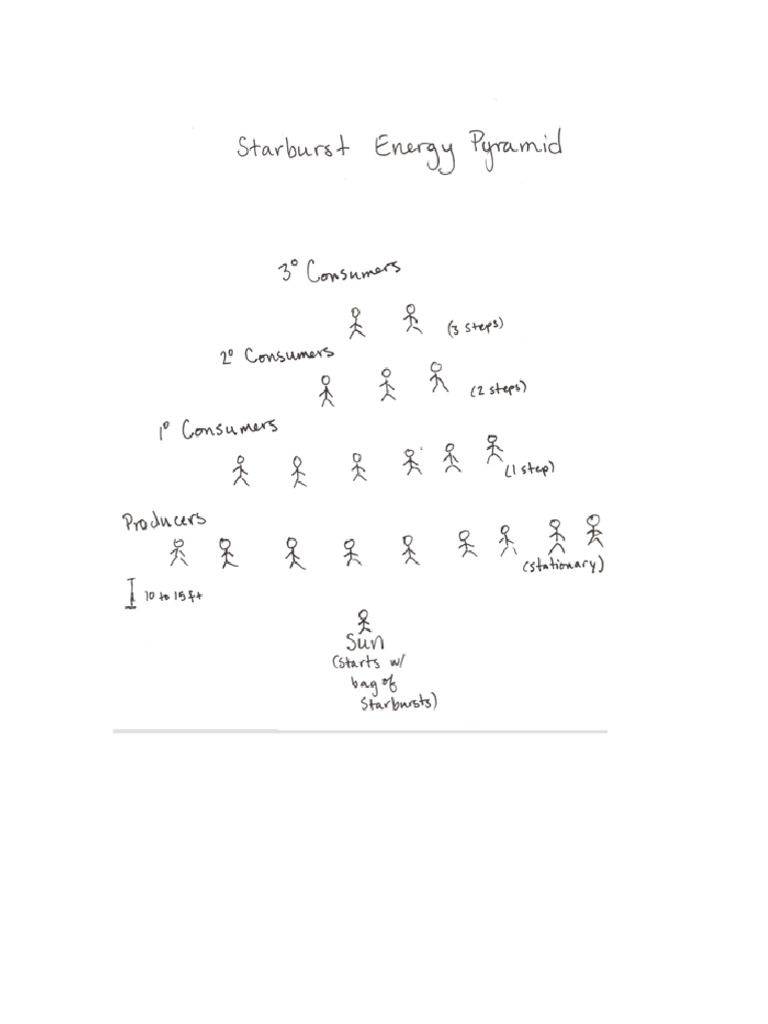 Starburst Energy Pyramid
3° Consumers
(3 steps)
2° Consumers
(2 steps)
1° Consumers
(1 step)
Producers
(stationary)
10 to 15 ft
Sun
(starts w/
bag of
Starbursts)